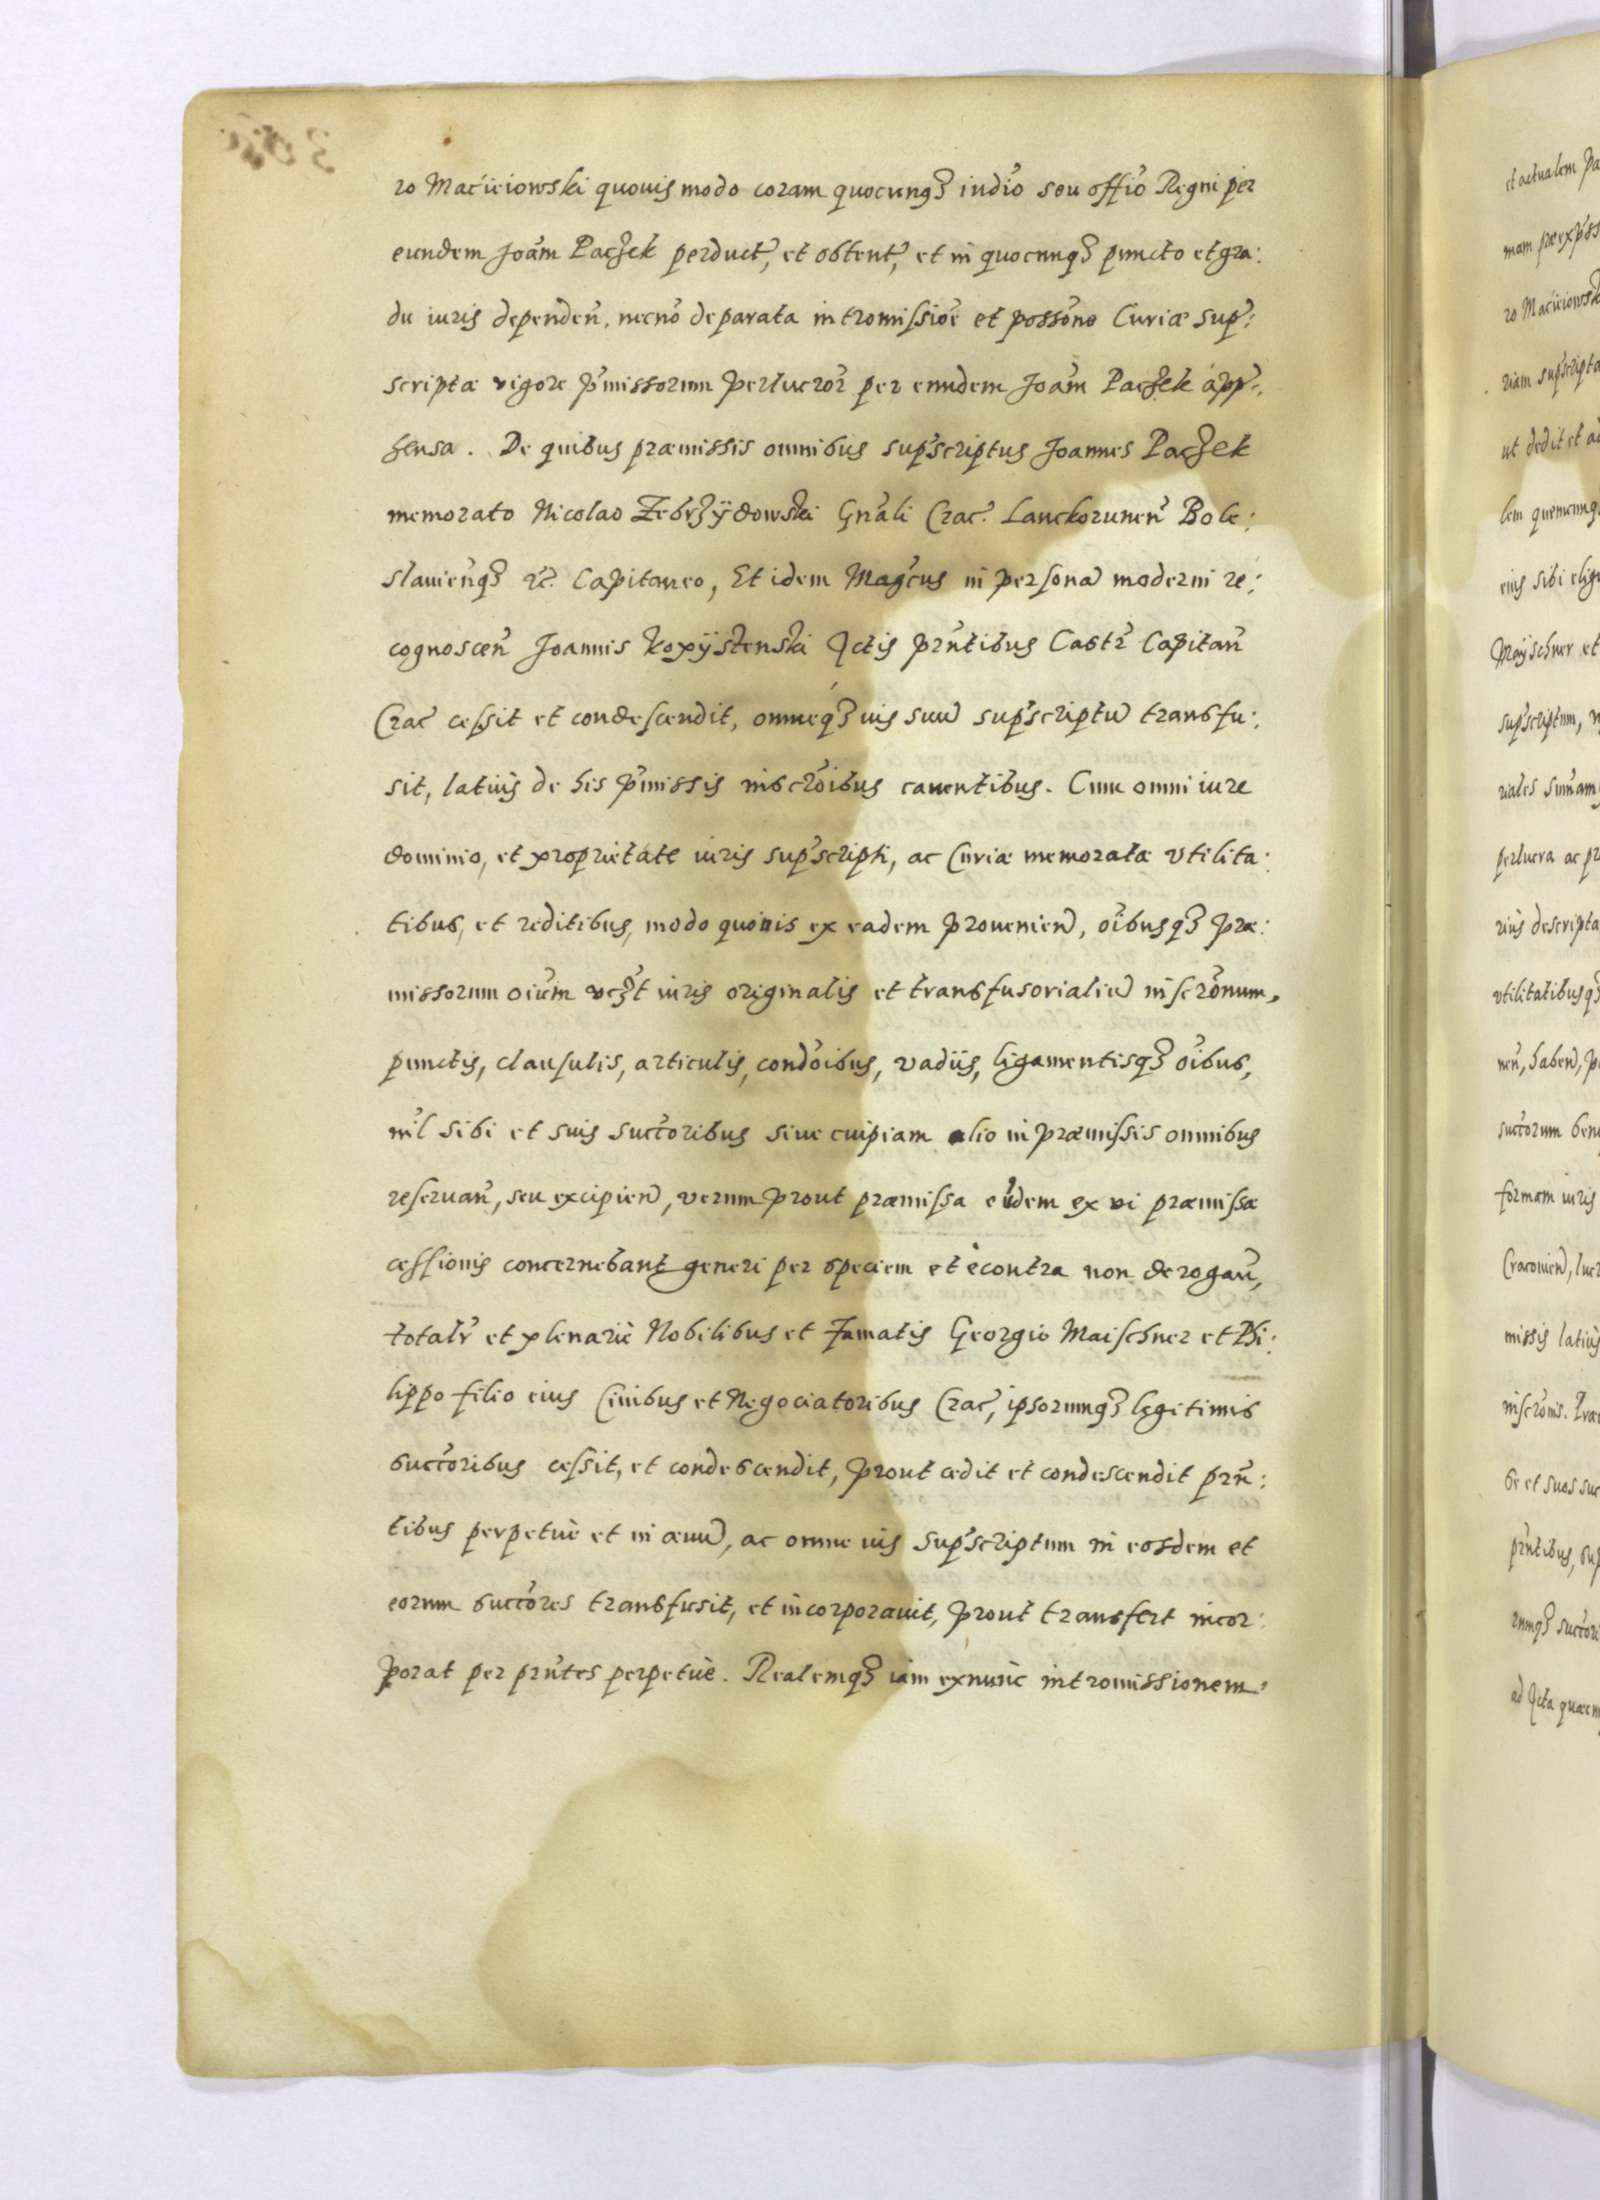 ro Maciieiowski quouis modo coram quocunqꝫ iudio seu offio Regni per
eundem Joam Paczek perduct, et obtent, et in quocunqꝫ puncto et gra:
du iuris dependen, necno de parata intromissioe et possone Curiæ sup:
scriptæ vigore pmissorum perlucror per eundem Joam Paczek app:
hensa. De quibus præmissis omnibus supscriptus Joannes Paczek
memorato Nicolao Zebrzÿdowski Gnali Crac. Lanckorunen Bole:
slauienqꝫ &c. Capitaneo, Et idem Magcus in persona moderni re:
cognoscen Joannis Kopÿstenski Actis pntibus Castr Capitan
Crac cessit et condescendit, omneqꝫ ius suu supscriptu transfu:
sit, latius de his pmissis inscroibus cauentibus. Cum omni iure
dominio, et proprietate iuris supscripti, ac Curiæ memoratæ vtilita:
tibus, et reditibus, modo quouis ex eadem prouenien, oibusqꝫ præ:
missorum oium vczt iuris originalis et transfusorialiu inscronum,
punctis, clausulis, articulis, condoibus, vadiis, ligamentisqꝫ oibus,
nil sibi et suis succoribus siue cuipiam alio in præmissis omnibus
reseruan, seu excipien, verum prout præmissa eidem ex vi præmissæ
cessionis concernebant generi per speciem et è contra non derogan,
totalr et plenariè Nobilibus et Famatis Georgio Maischner et Phi:
lippo filio eius Ciuibus et Negociatoribus Crac, ipsorumqꝫ legitimis
succoribus cessit, et condescendit, prout cedit et condescendit prn:
tibus perpetuè et in æuu, ac omne ius supscriptum in eosdem et
eorum succores transfusit, et incorporauit, prout transfert incor:
porat per prntes perpetuè. Realemqꝫ iam exnunc intromissionem
et actualem
ro Maciieiowsk
riam supscripta
ut dedit et
eius sibi
Mayschner et
supscriptum,
perlucra ac
rius descripta
vtilitatibusqꝫ
nen, haben,
succorum
formam iuris
Cracouien,
missis latius
inscronis.
se et suos
pntibus,
rumqꝫ
ad Acta